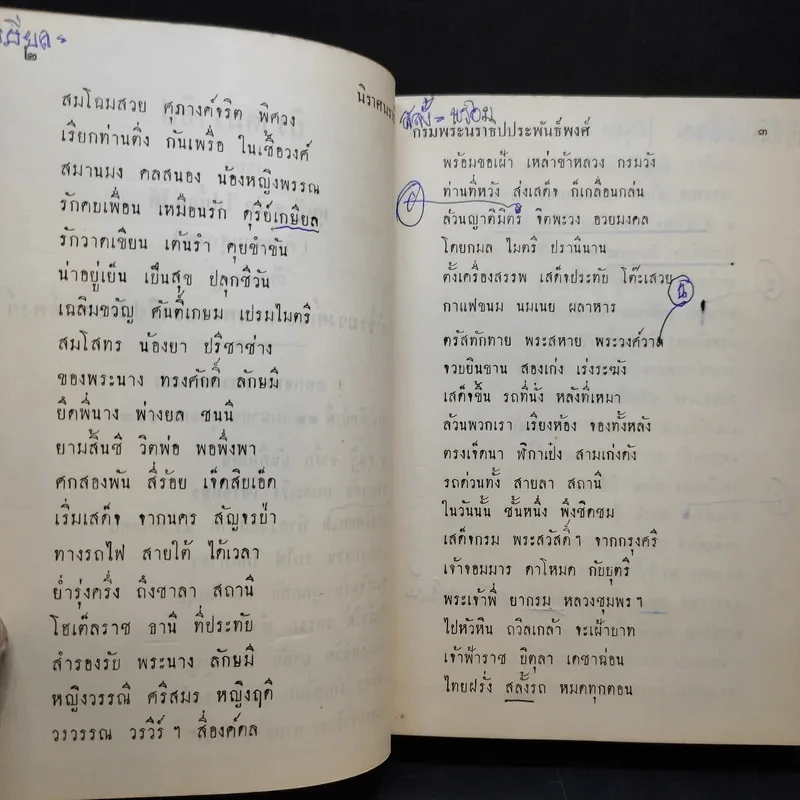 ๒
นิราศนรา
สมโฉมสวย ศุภางค์จริต พิศวง
เรียกท่านติ่ง กันเพรื่อ ในเชื้อวงศ์
สมานมง คลสนอง น้องหญิงพรรณ
รักคบเพื่อน เหมือนรัก ดุริย์เกษียล
รักวาดเขียน เต้นรำ คุยขำขัน
น่าอยู่เย็น เย็นสุข ปลุกชีวัน
เฉลิมขวัญ คันตี้เกษม เปรมไมตรี
สมโสทร น้องยา ปรีชาช่าง
ของพระนาง ทรงศักดิ์ ลักษมี
ยึดพี่นาง พ่างยล ชนนี
ยามสิ้นชี วิตพ่อ พอพึ่งพา
ศกสองพัน สี่ร้อย เจ็ดสิบเอ็ด
เริ่มเสด็จ จากนคร สัญจรป่า
ทางรถไฟ สายใต้ ได้เวลา
ย่ำรุ่งครึ่ง ถึงซาลา สถานี
โฮเต็ลราช ธานี ที่ประทัย
สำรองรับ พระนาง ลักษมี
หญิงวรรณี ศรีสมร หญิงฤดี
วรวรรณ วรวีร์ ฯ สี่องค์คล
สลั้ง = พร้อม
กรมพระนราธิปประพันธ์พงศ์
๓
พร้อมขอเฝ้า เหล่าข้าหลวง กรมวัง
ท่านที่หวัง ส่งเสด็จ ก็เกลื่อนกล่น
ล้วนญาติมิตร จิตพะวง อวยมงคล
โดยกมล ไมตรี ปรานีนาน
ตั้งเครื่องสรรพ เสด็จประทัย โต๊ะเสวย
กาแฟขนม นมเนย ผลาหาร
ตรัสทักทาย พระสหาย พระวงศ์วาน
จวบยินขาน สองเก่ง เร่งระฆัง
เสด็จขึ้น รถที่นั่ง หลังที่เหมา
ล้วนพวกเรา เรียงห้อง จองทั้งหลัง
ตรงเจ็ดนา ฬิกาเป๋ง สามเก่งดัง
รถด่วนทั้ง สายลา สถานี
ในวันนั้น ชั้นหนึ่ง พึ่งชิดชม
เสด็จกรม พระสวัสดิ์ ฯ จากกรุงศรี
เจ้าจอมมาร ดาโหมด กับบุตรี
พระเจ้าพี่ ยากรม หลวงชุมพร ฯ
ไปหัวหิน ถวิลเกล้า จะเฝ้าบาท
เจ้าฟ้าราช บิตุลา เดชาฉ่อน
ไทยฝรั่ง สลั้งรถ หมดทุกตอน